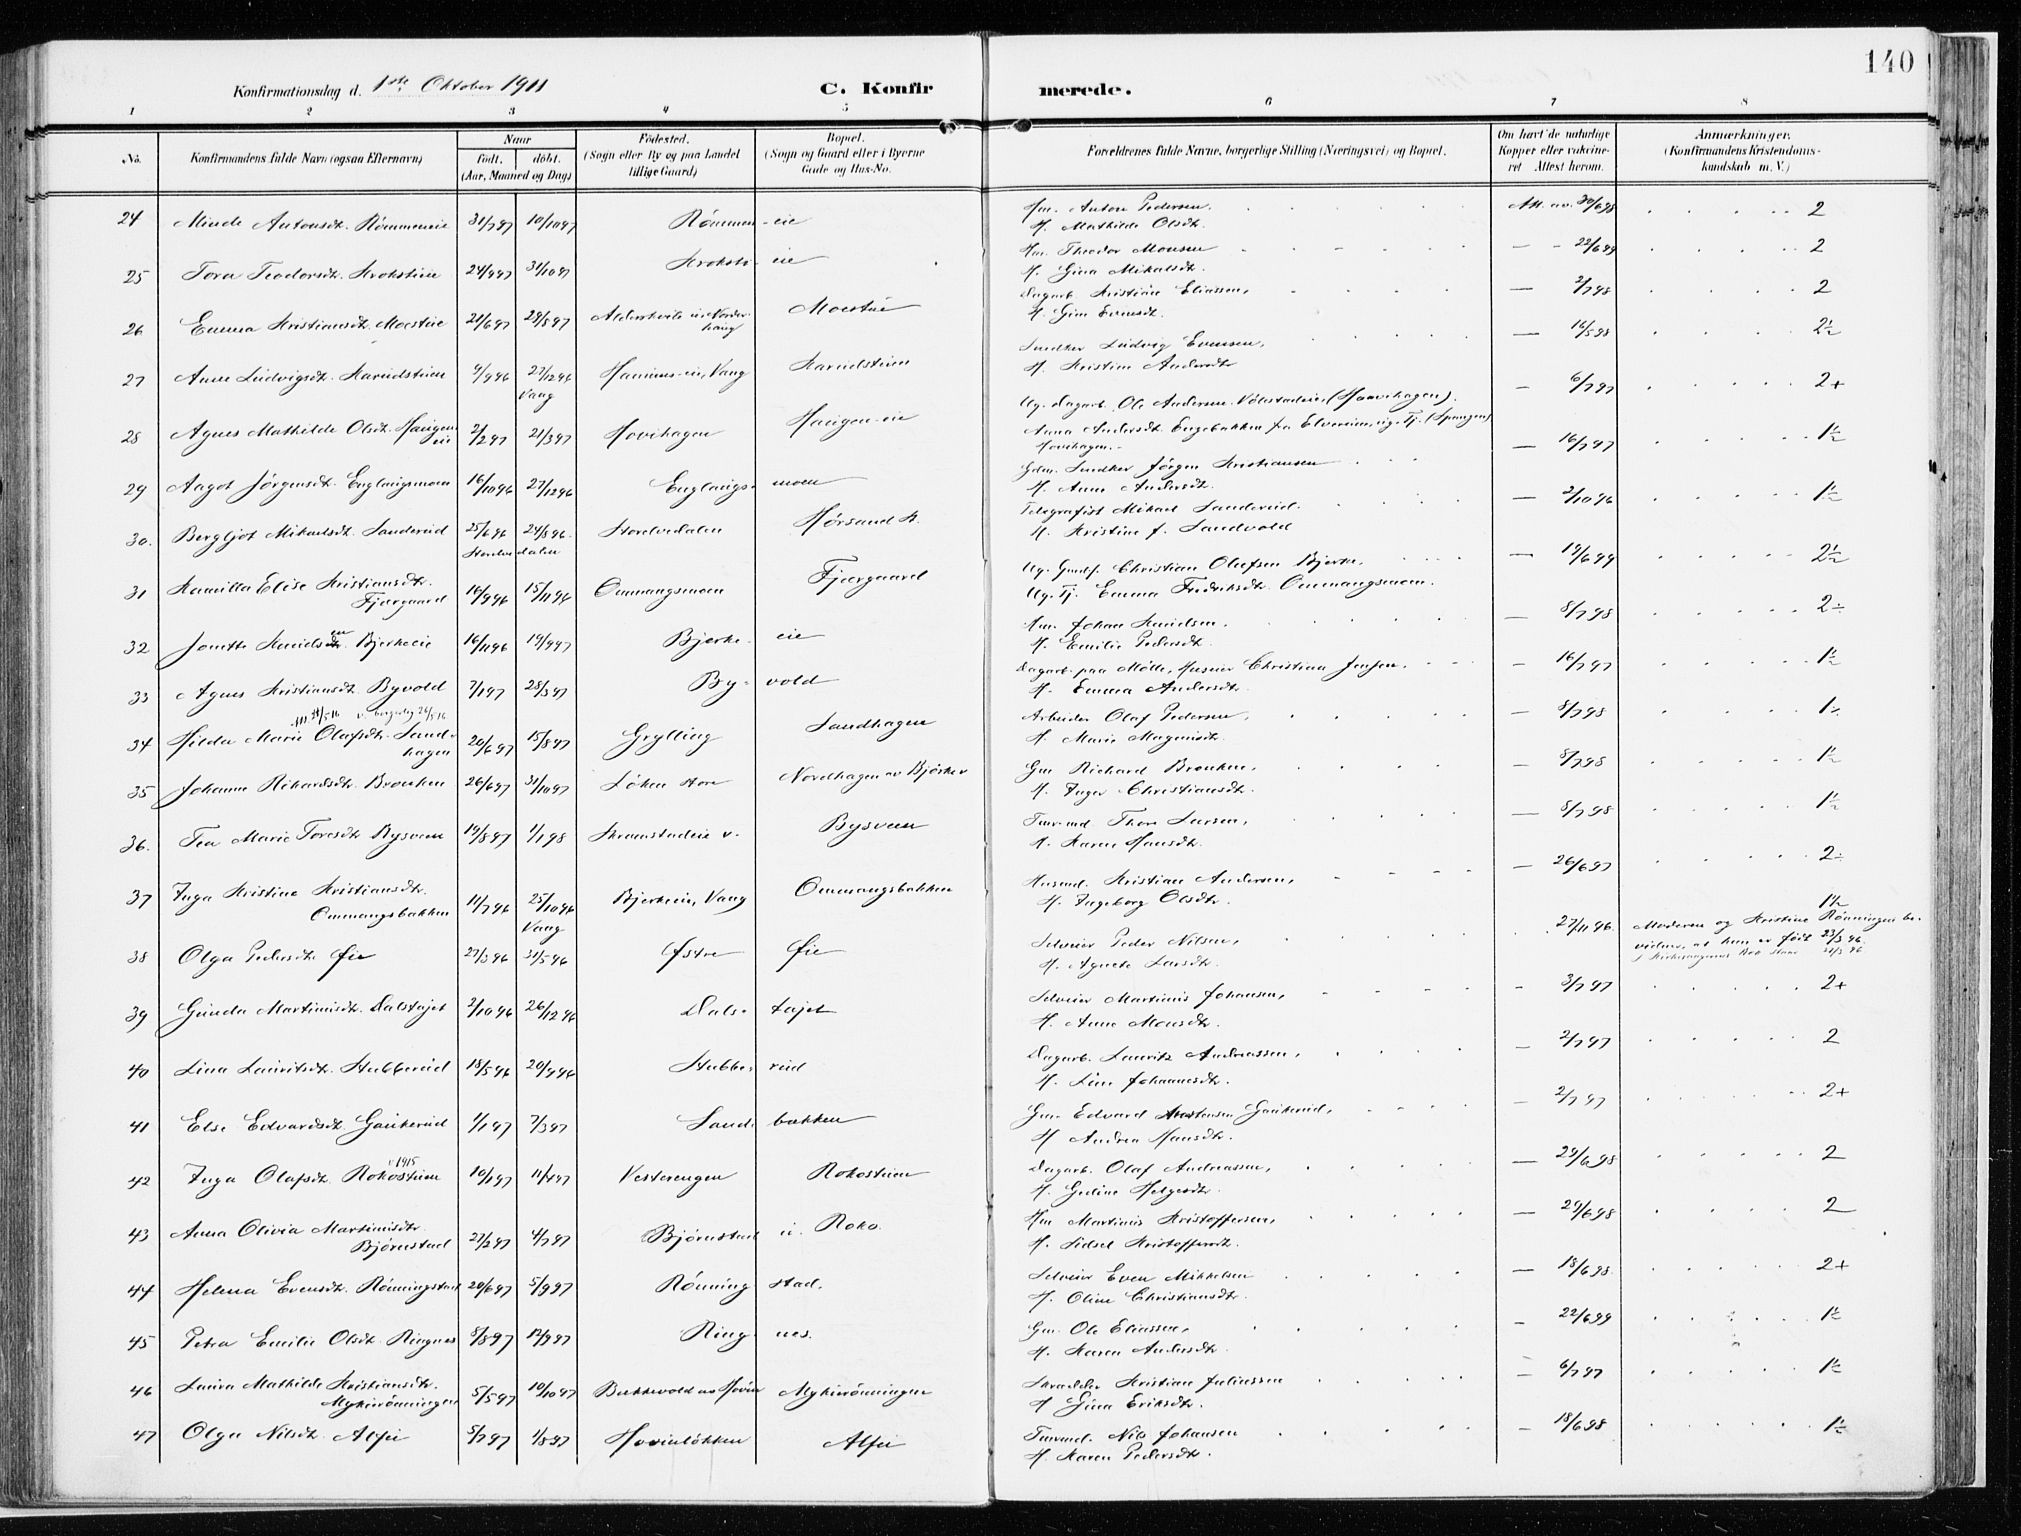 140
Konfirmationsdag d. 1ste Oktober 1911
C. Konfirmerede.
1 2 3 4 5 6 7 8
No.
Konfirmandens fulde Navn (ogsaa Efternavn)
Naar
födt. döbt.
(Aar, Maaned og Dag)
Födested.
(Sogn eller By og paa Landet
tillige Gaard)
Bopæl.
(Sogn og Gaard eller i Byerne
Gade og Hus-No.
Forældrenes fulde Navne, borgerlige Stilling (Næringsvei) og Bopæl.
Om havt de naturlige
Kopper eller vakcine-
ret Attest herom.
Anmærkninger.
(Konfirmandens Kristendoms-
kundskab m. V.)
24 Minda Antonsdt. Römmeneie 31/7 97 10/10 97 Römmen-eie
Hm. Anton Pedersen. Att. av. 30/6 98 2
H. Mathilde Olsdt.
25 Tora Teodorsdt. Krokstieie 24/9 97 31/10 97 Kroksti-eie
Hm. Theodor Monsen — 22/6 99 2
H. Gina Mikalsdt.
26 Emma Kristiansdt. Moestue 21/6 97 29/8 97 Moestue
Dagarb. Kristian Eliassen, — 2/7 98 2
27 Anne Ludvigsdt. Karudstuen 9/9 96 27/12 96 Vang Hammer-eie, Vang Karudstuen
Ludvig Evensen, — 16/5 98 2½
H. Kristine Andersdt
28 Agnes Mathilde Olsdt. Haugen-eie 2/2 97 21/3 97 Hovihagen Haugen-eie
Ug. Dagarb. Ole Andersen (Hovihagen). — 6/7 97 2+
Anna Andersdt. Engebakken fra Elverum, ug. Tj. (Spangen)
Hovihagen.
29 Aagot Jörgensdt. Englaugsmoen 16/10 96 27/12 96 Englaugs-moen
Jörgen Kristiansen — 16/7 97 1½
H. Anne Andersdt.
30. Bergljot Mikaelsdt. Sanderud 25/6 96 24/8 96. Storelvedalen Storelvedalen Hörsand
Telegrafist Mikael Sanderud. — 2/10 96 1½
H. Kristine f. Sandvold
31 Kamilla Elise Kristiansdtr. Fjærgaard 16/9 96 15/11 96 Ommangsmoen Fjærgaard
Ug. Christian Olufsen Bjerke, — 19/6 99 2½
Ug. Tj. Emma Fredriksdt. Ommangsmoen.
32 Jonette Knudsen Bjerkeeie 16/11 96 19/9 97 Bjerke-eie
Hm. Johan Knudsen. — 8/7 98 2÷
H. Emilie Pedersdt.
33 Agnes Kristiansdt. Byvold 7/1 97 28/3 97 By-vold
Dagarb. paa Mölle, Christian Jensen. — 16/7 97 1½
H. Emma Andersdt.
v. borgerlig 26/5 16
34 Hilda Marie Olafsdt. Sandhagen 20/6 97 15/8 97 Grylling Sandhagen
Arbeider Olaf Pedersen, — 8/7 98 1½
H. Marie Magnusdt.
35 Johanne Rikardsdt. Brenken 26/6 97 31/10 97 Löken store Nordhagen av Björke v
Gm. Richard Brenken, — 8/7 98 1½
H. Inger Christiansdt.
36. Tea Marie Toresdt Bysveen 19/8 97 1/1 98 Skramstadeie v. Bysveen
Thore Larsen, — 8/7 98 1½
H. Karen Hansdt.
37 Inga Kristine Kristiansdtr. Ommangsbakken 11/7 96 25/10 96 Vang Bjerkeeie, Vang Ommangsbakken
Husmd. Kristian Andersen, — 26/6 97 2÷
H. Ingeborg Olsdt.
38 Olga Pedersdt. Øie 27/3 96 31/5 96 Østre Øie
Selveier Peder Nilsen, 27/11 96. 1½
H. Agnete Larsdt.
Moderen og Kristine Rönningen be-
vidner, at hun er födt 23/3 96.
39 Gunda Martinusdt. Dalstøjet 2/10 96 26/12 96 Dals-tøjet
Selveier Martinus Johansen, — 3/7 97 2+
H. Anne Monsdt.
40 Lina Lauritsdt. Stubberud 18/5 96 20/9 96 Stubbe-rud
Dagarb. Lauritz Andreassen, — 2/7 97 2
H. Line Johannesdt.
41 Else Edvardsdt Gaukerud 1/1 97 7/3 97 Sand-bakken
Gm. Edvard Gaukerud, — 2/7 97 2+
H Andrea Hansdt.
v 1915
42 Inga Olafsdt. Rokostuen 10/1 97 11/4 97 Vesterengen Rokostuen
Dagarb. Olaf Andreassen, — 29/6 98 2
H. Gudine Helgesdt.
43 Anna Olivia Martinusdtr. Björnstad 27/2 97 4/7 97 Björnstad i. Roko.
Hm Martinus Kristoffersen, — 29/6 98 2
H. Sidsel Kristoffersdt.
44 Helena Evensdt. Rönningstad 20/6 97 5/9 97 Rönning stad.
Selveier Even Mikkelsen — 18/6 98. 2+
H. Oline Christiansdt.
45 Petra Emilie Olsdt. Ringnes 8/8 97 12/9 97 Ring-nes.
Gm. Ole Eliassen, — 22/6 99 1½
H. Karen Andersdt.
46 Laura Mathilde Kristiansdtr. Mykirönningen 5/5 97 10/10 97 Bekkevold Mykirönningen
Skrædder Kristian Juliussen — 6/7 97 1½
H Gina Eriksdt.
47 Olga Nilsdt. Alfei 5/7 97 1/8 97 Hovinlökken Alfei
Nils Johansen — 18/6 98 1½
H. Karen Pedersdt.